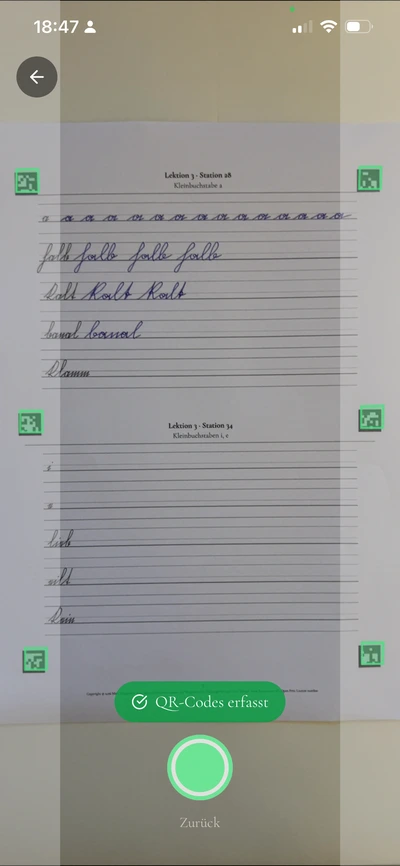 18:47
Lektion 3 · Station 28
Kleinbuchstabe a
a a a a a a a a a a a a a a
falb falb falb falb
kalt kalt kalt
banal banal
klamm
Lektion 3 · Station 34
Kleinbuchstaben i, e
i
e
lieb
eilt
kein
QR-Codes erfasst
Zurück